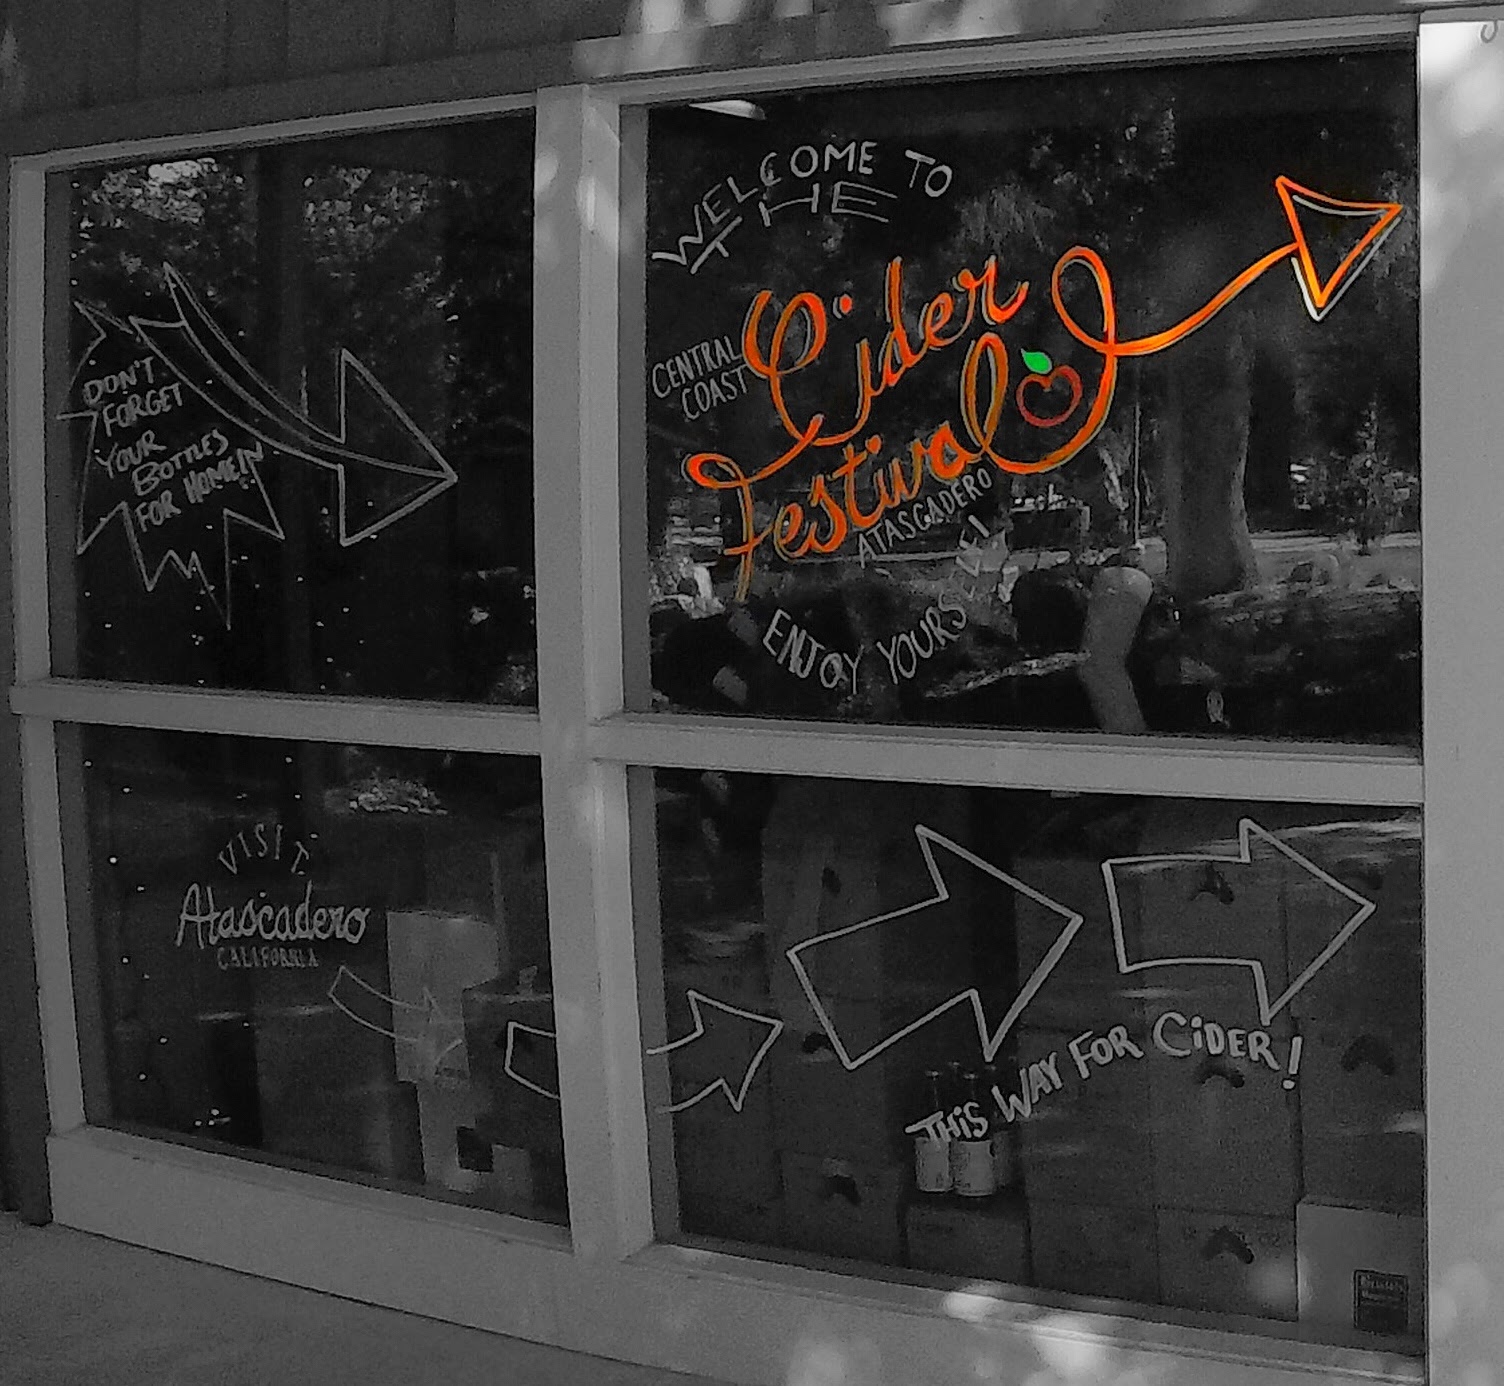 WELCOME TO
THE
CENTRAL
COAST
Cider
Festival
ATASCADERO
ENJOY YOURSELF!
DON'T
FORGET
YOUR
BOTTLES
FOR HOME!
VISIT
Atascadero
CALIFORNIA
THiS WAY FOR CiDER!